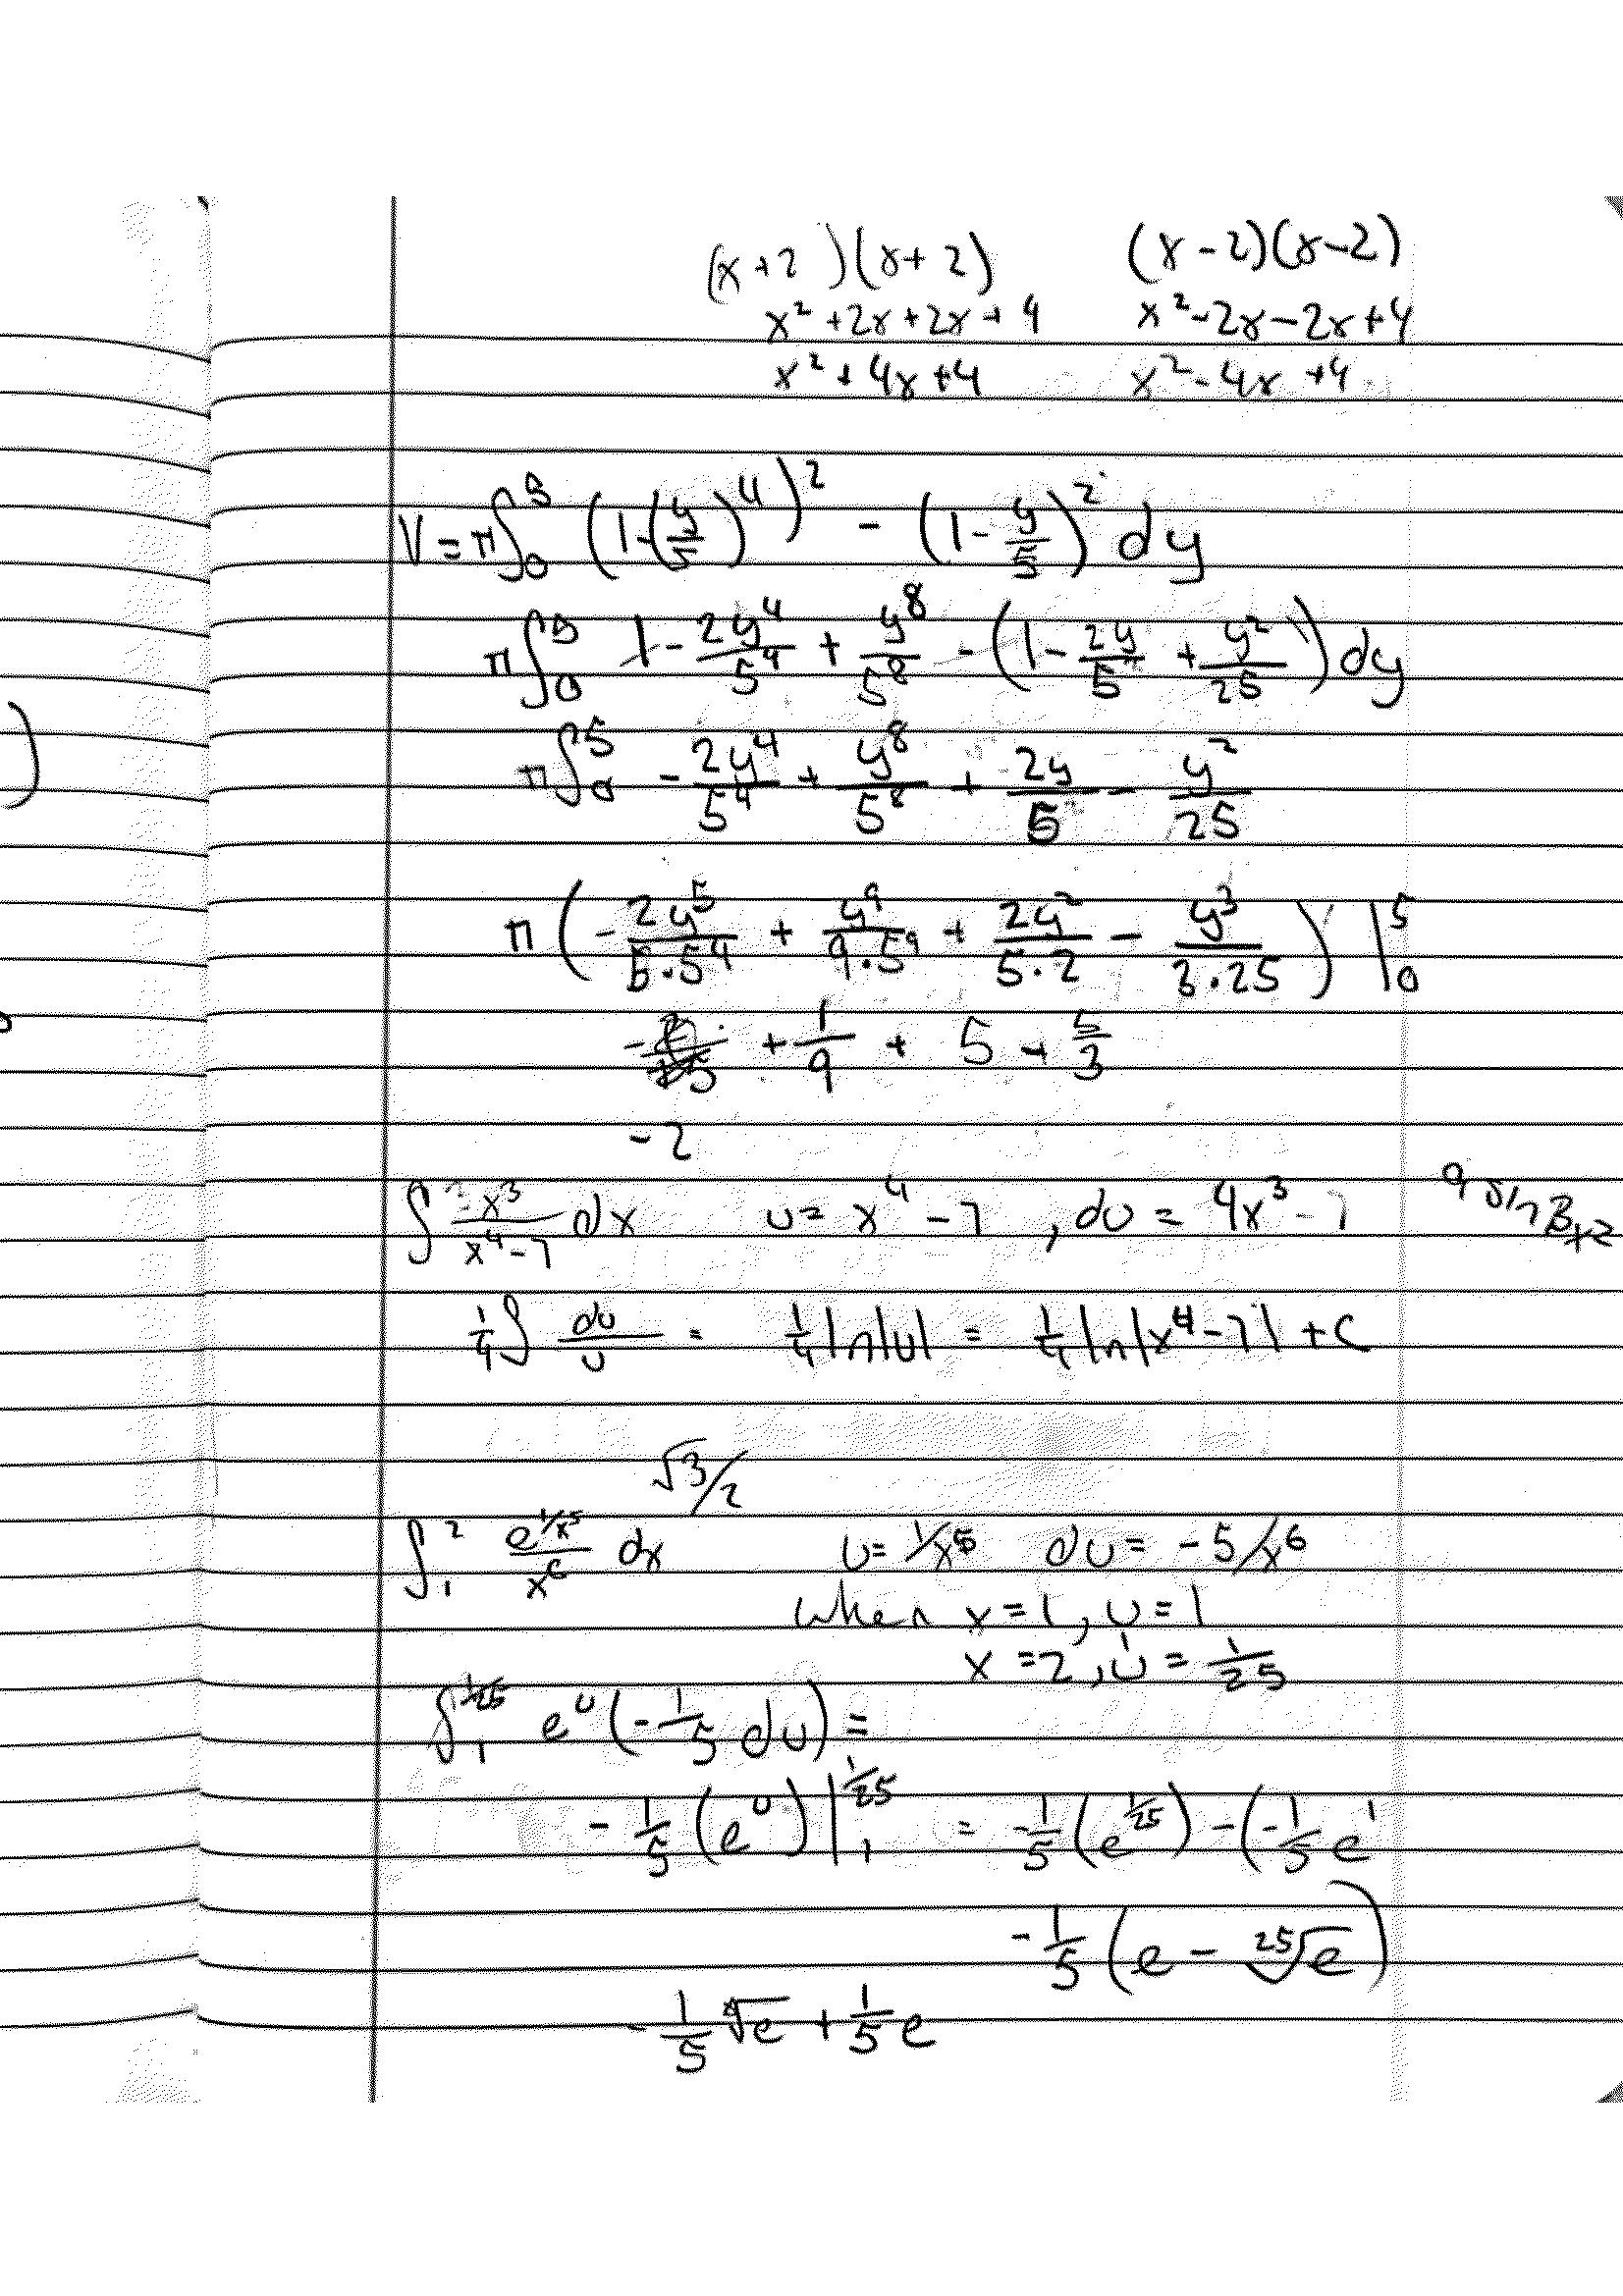 (x+2)(x+2) (x-2)(x-2)
x²+2x+2x+4 x²-2x-2x+4
x²+4x+4 x²-4x+4
V = π∫₀⁵ (1-(y/5)⁴)² - (1-y/5)² dy
π∫₀⁵ 1 - 2y⁴/5⁴ + y⁸/5⁸ - (1 - 2y/5 + y²/25) dy
)
π∫₀⁵ - 2y⁴/5⁴ + y⁸/5⁸ + 2y/5 - y²/25
π( - 2y⁵/(5·5⁴) + y⁹/(9·5⁹) + 2y²/(5·2) - y³/(3·25) ) |₀⁵
+ 1/9 + 5 - 5/3
-2
∫ x³/(x⁴-7) dx u = x⁴-7 , du = 4x³-7
1/4 ∫ du/u = 1/4 ln|u| = 1/4 ln|x⁴-7| + C
√3/2
∫₁² e^(1/x⁵)/x⁶ dx u = 1/x⁵ du = -5/x⁶
when x=1, u=1
x=2, u = 1/25
∫₁^(1/25) e^u (-1/5 du) =
-1/5 (e^u) |₁^(1/25) = -1/5 (e^(1/25)) - (-1/5 e¹
-1/5 (e - ²⁵√e)